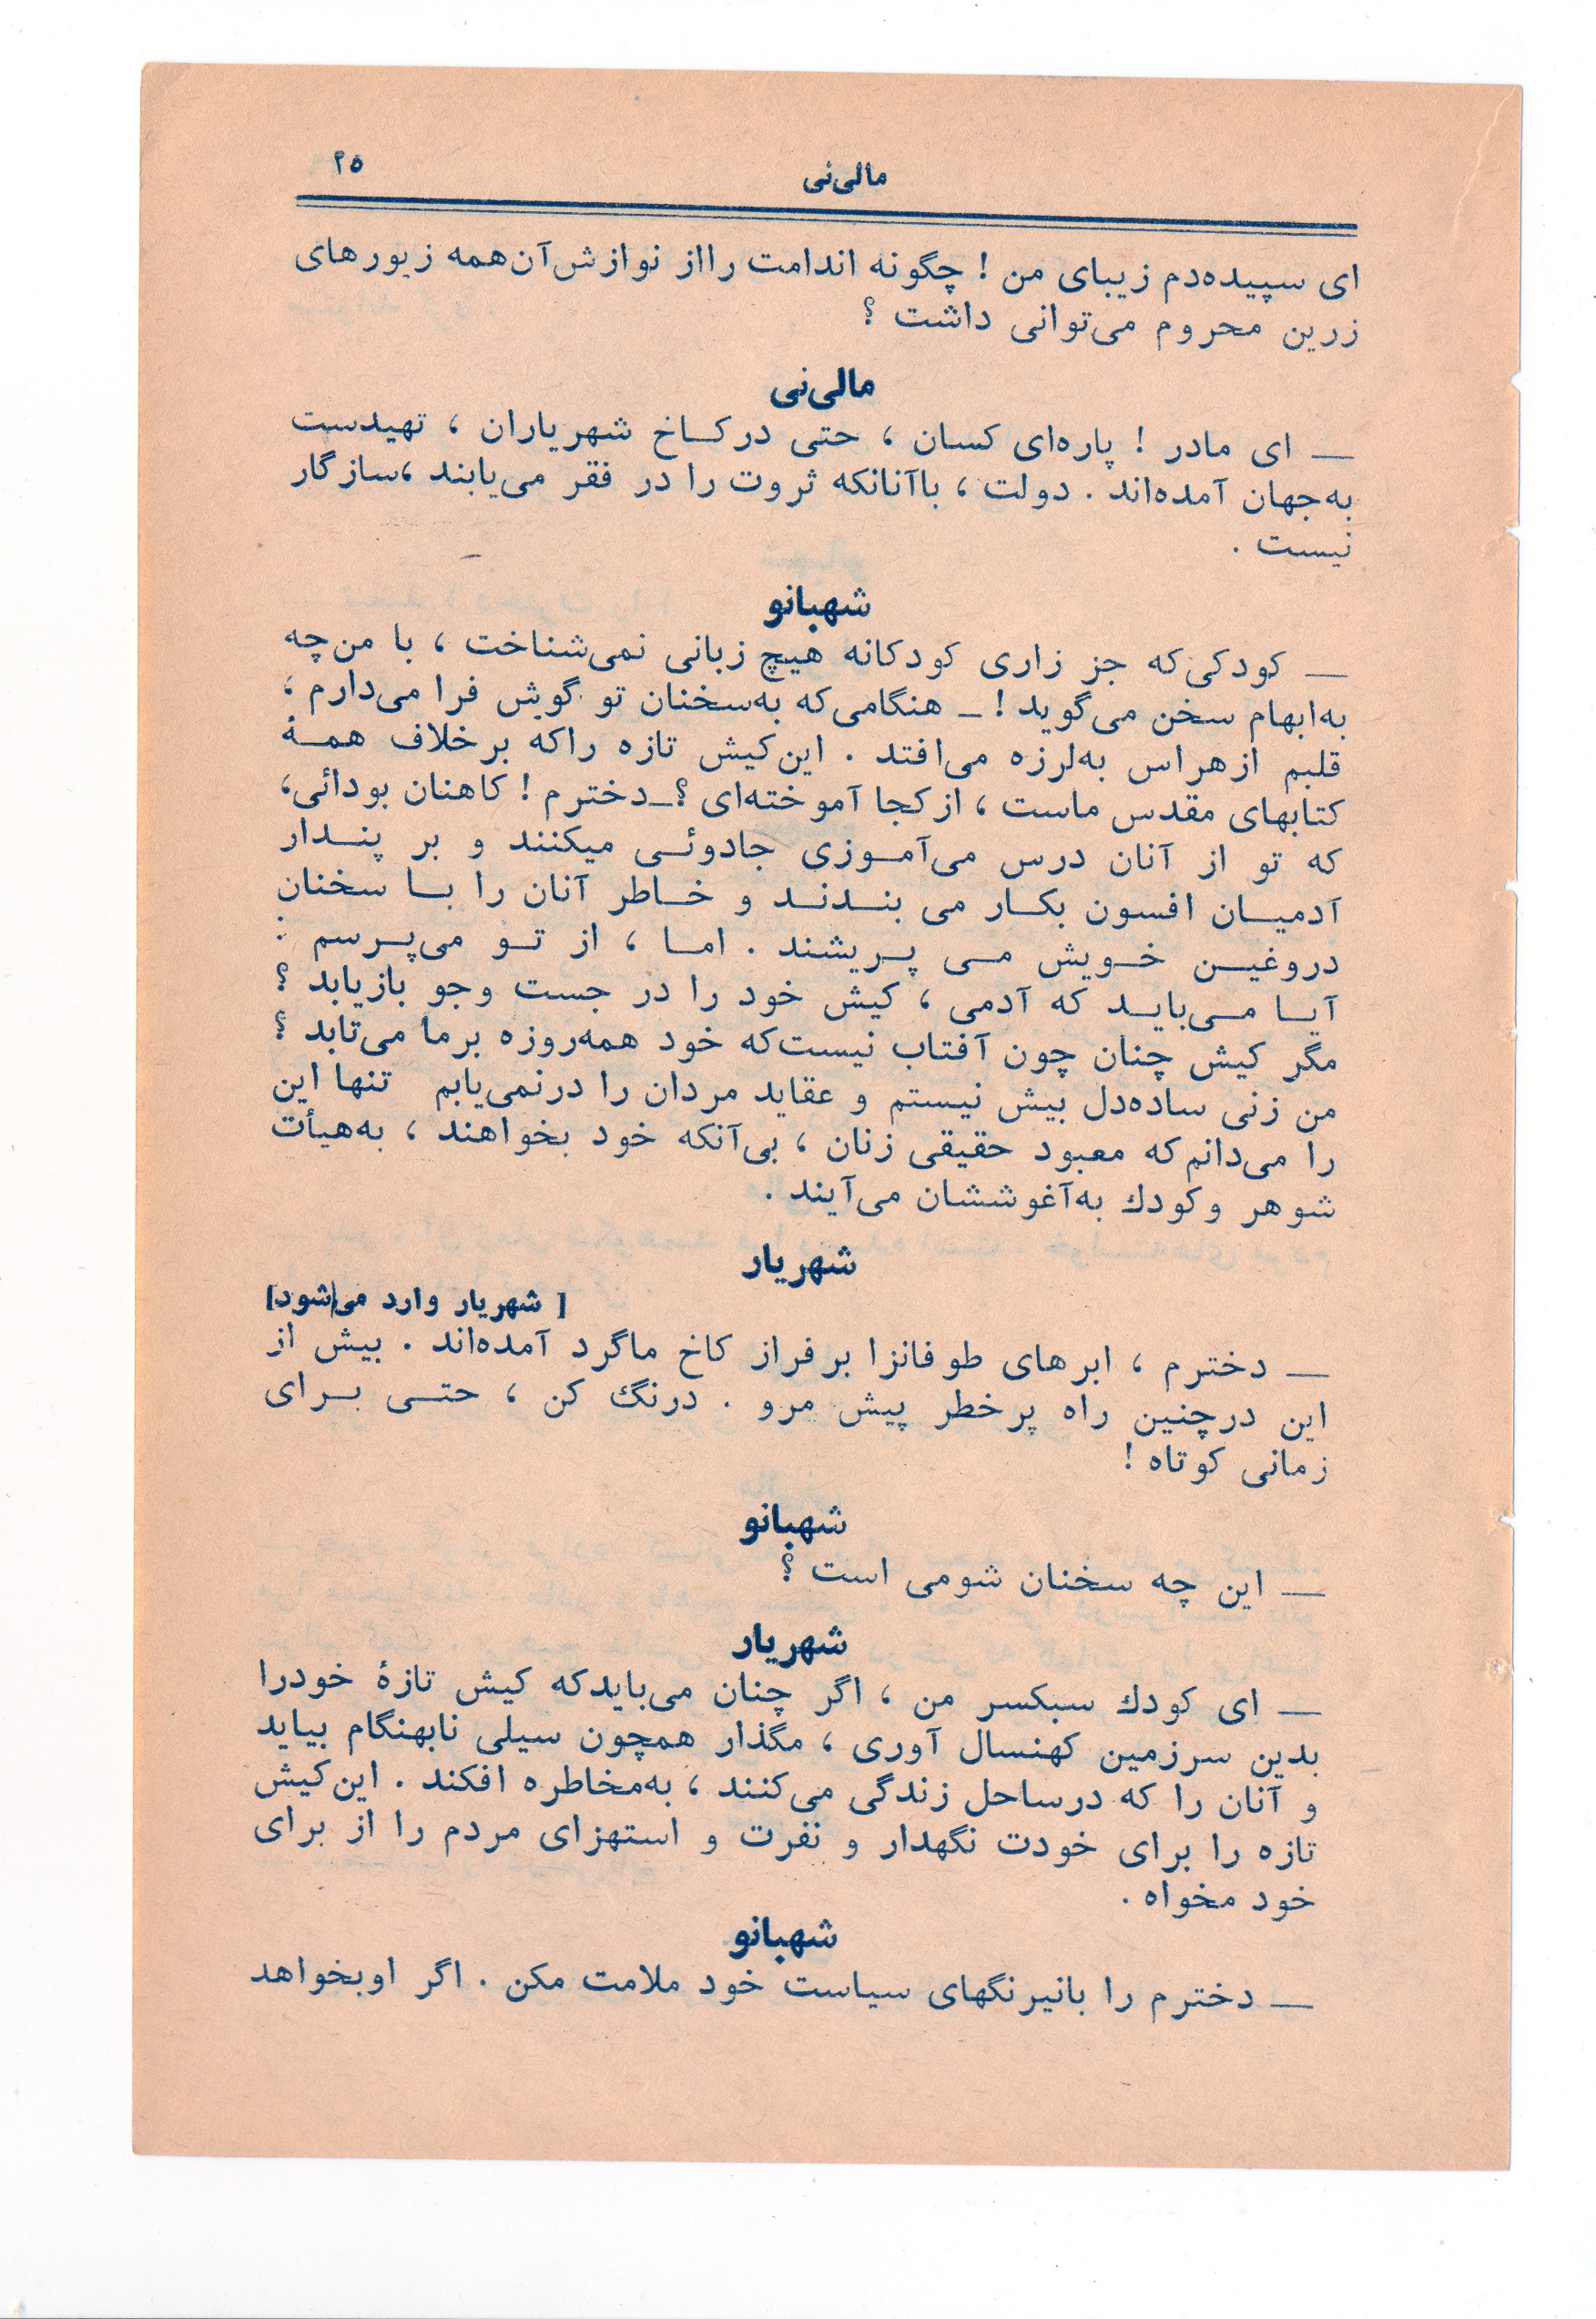 مالی‌نی
۲۵
ای سپیده‌دم زیبای من ! چگونه اندامت رااز نوازش‌آن‌همه زیورهای
زرین محروم می‌توانی داشت ؟
مالی‌نی
ــ ای مادر ! پاره‌ای کسان ، حتی درکاخ شهریاران ، تهیدست
به‌جهان آمده‌اند . دولت ، باآنانکه ثروت را در فقر می‌یابند ،سازگار
نیست .
شهبانو
ــ کودکی‌که جز زاری کودکانه هیچ زبانی نمی‌شناخت ، با من‌چه
به‌ابهام سخن می‌گوید ! ــ هنگامی‌که به‌سخنان تو گوش فرا می‌دارم ،
قلبم ازهراس به‌لرزه می‌افتد . این‌کیش تازه راکه برخلاف همۀ
کتابهای مقدس ماست ، ازکجا آموخته‌ای ؟ــدخترم ! کاهنان بودائی،
که تو از آنان درس می‌آموزی جادوئی میکنند و بر پندار
آدمیان افسون بکار می بندند و خاطر آنان را با سخنان
دروغین خویش می پریشند . اما ، از تو می‌پرسم :
آیا می‌باید که آدمی ، کیش خود را در جست وجو بازیابد ؟
مگر کیش چنان چون آفتاب نیست‌که خود همه‌روزه برما می‌تابد ؟
من زنی ساده‌دل بیش نیستم و عقاید مردان را درنمی‌یابم تنها این
را می‌دانم‌که معبود حقیقی زنان ، بی‌آنکه خود بخواهند ، به‌هیأت
شوهر وکودك به‌آغوششان می‌آیند .
شهریار
[ شهریار وارد می‌شود]
ــ دخترم ، ابرهای طوفانزا برفراز کاخ ماگرد آمده‌اند . بیش از
این درچنین راه پرخطر پیش مرو . درنگ کن ، حتی برای
زمانی کوتاه !
شهبانو
ــ این چه سخنان شومی است ؟
شهریار
ــ ای کودك سبکسر من ، اگر چنان می‌بایدکه کیش تازۀ خودرا
بدین سرزمین کهنسال آوری ، مگذار همچون سیلی نابهنگام بیاید
و آنان را که درساحل زندگی می‌کنند ، به‌مخاطره افکند . این‌کیش
تازه را برای خودت نگهدار و نفرت و استهزای مردم را از برای
خود مخواه .
شهبانو
ــ دخترم را بانیرنگهای سیاست خود ملامت مکن . اگر اوبخواهد